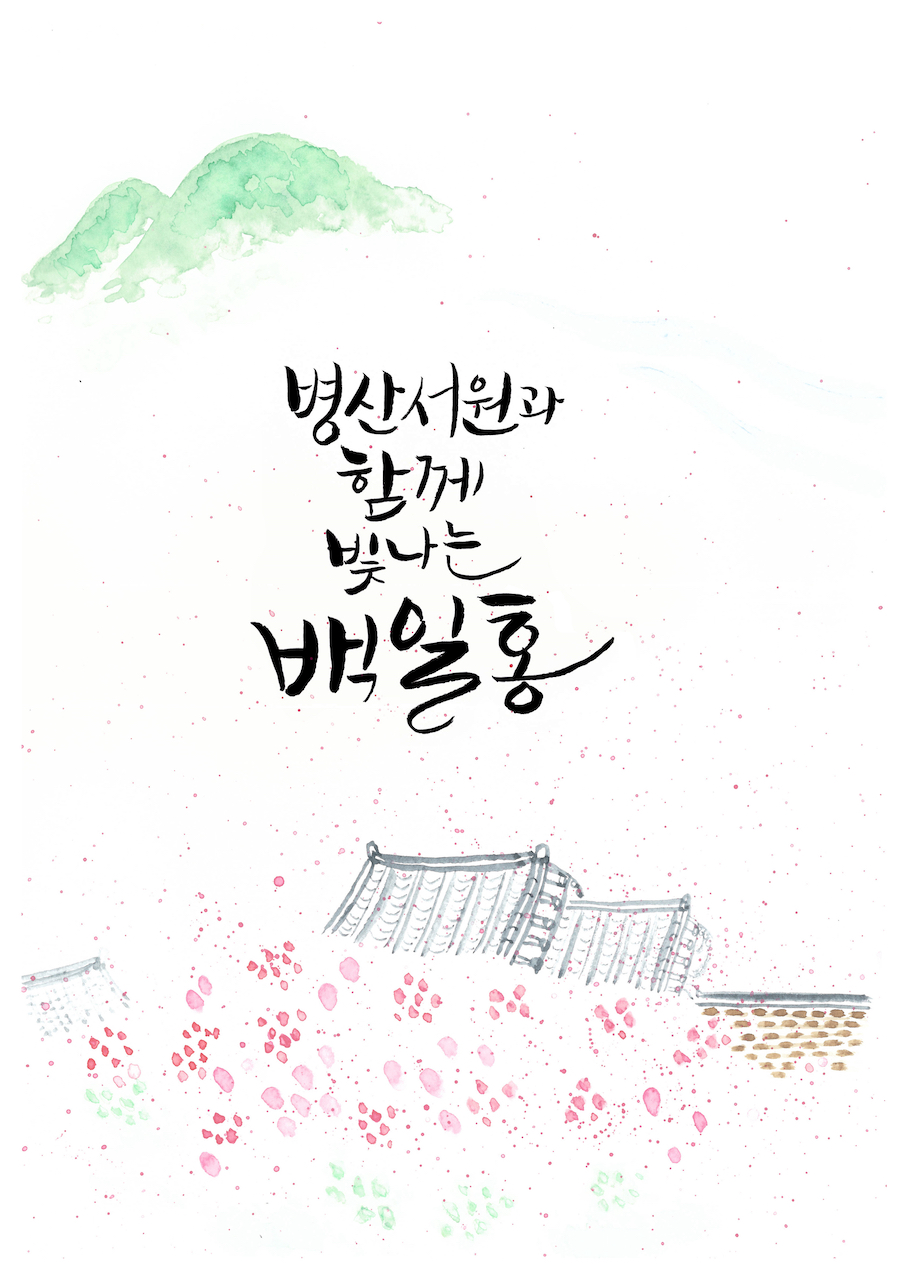 병산서원과
함께
빛나는
백일홍